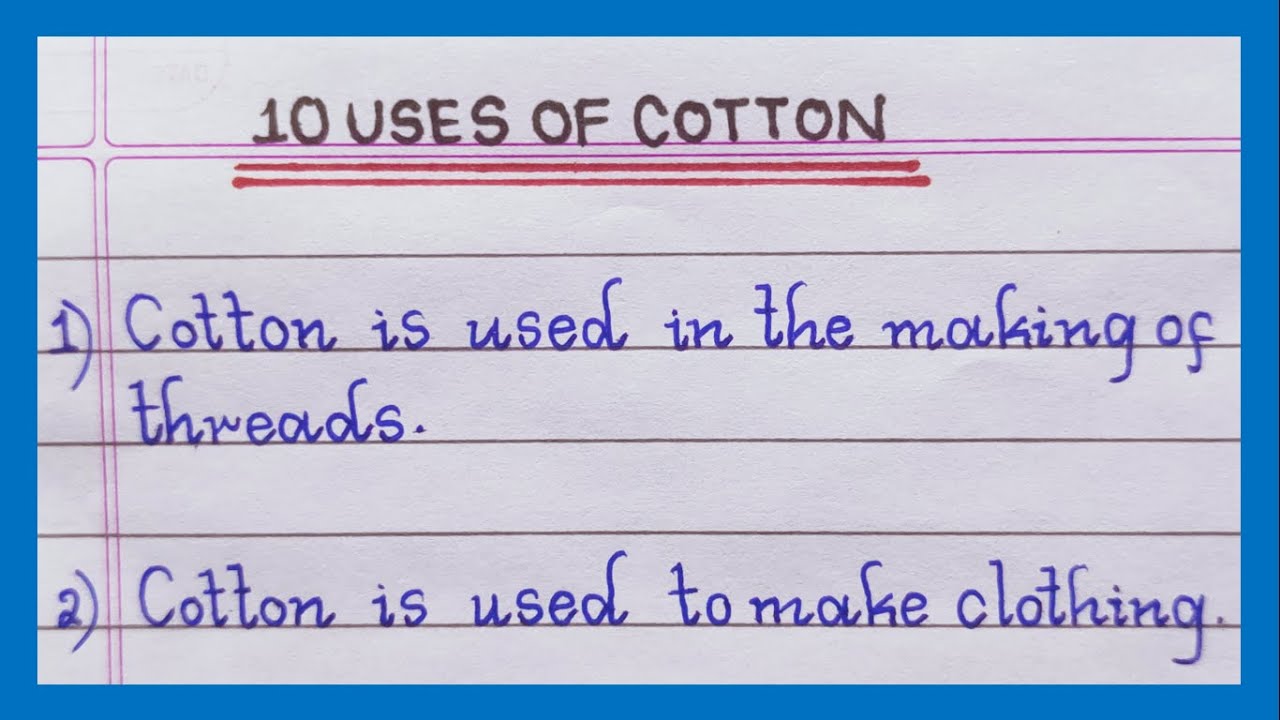 10 USES OF COTTON
1) Cotton is used in the making of
threads.
2) Cotton is used to make clothing.